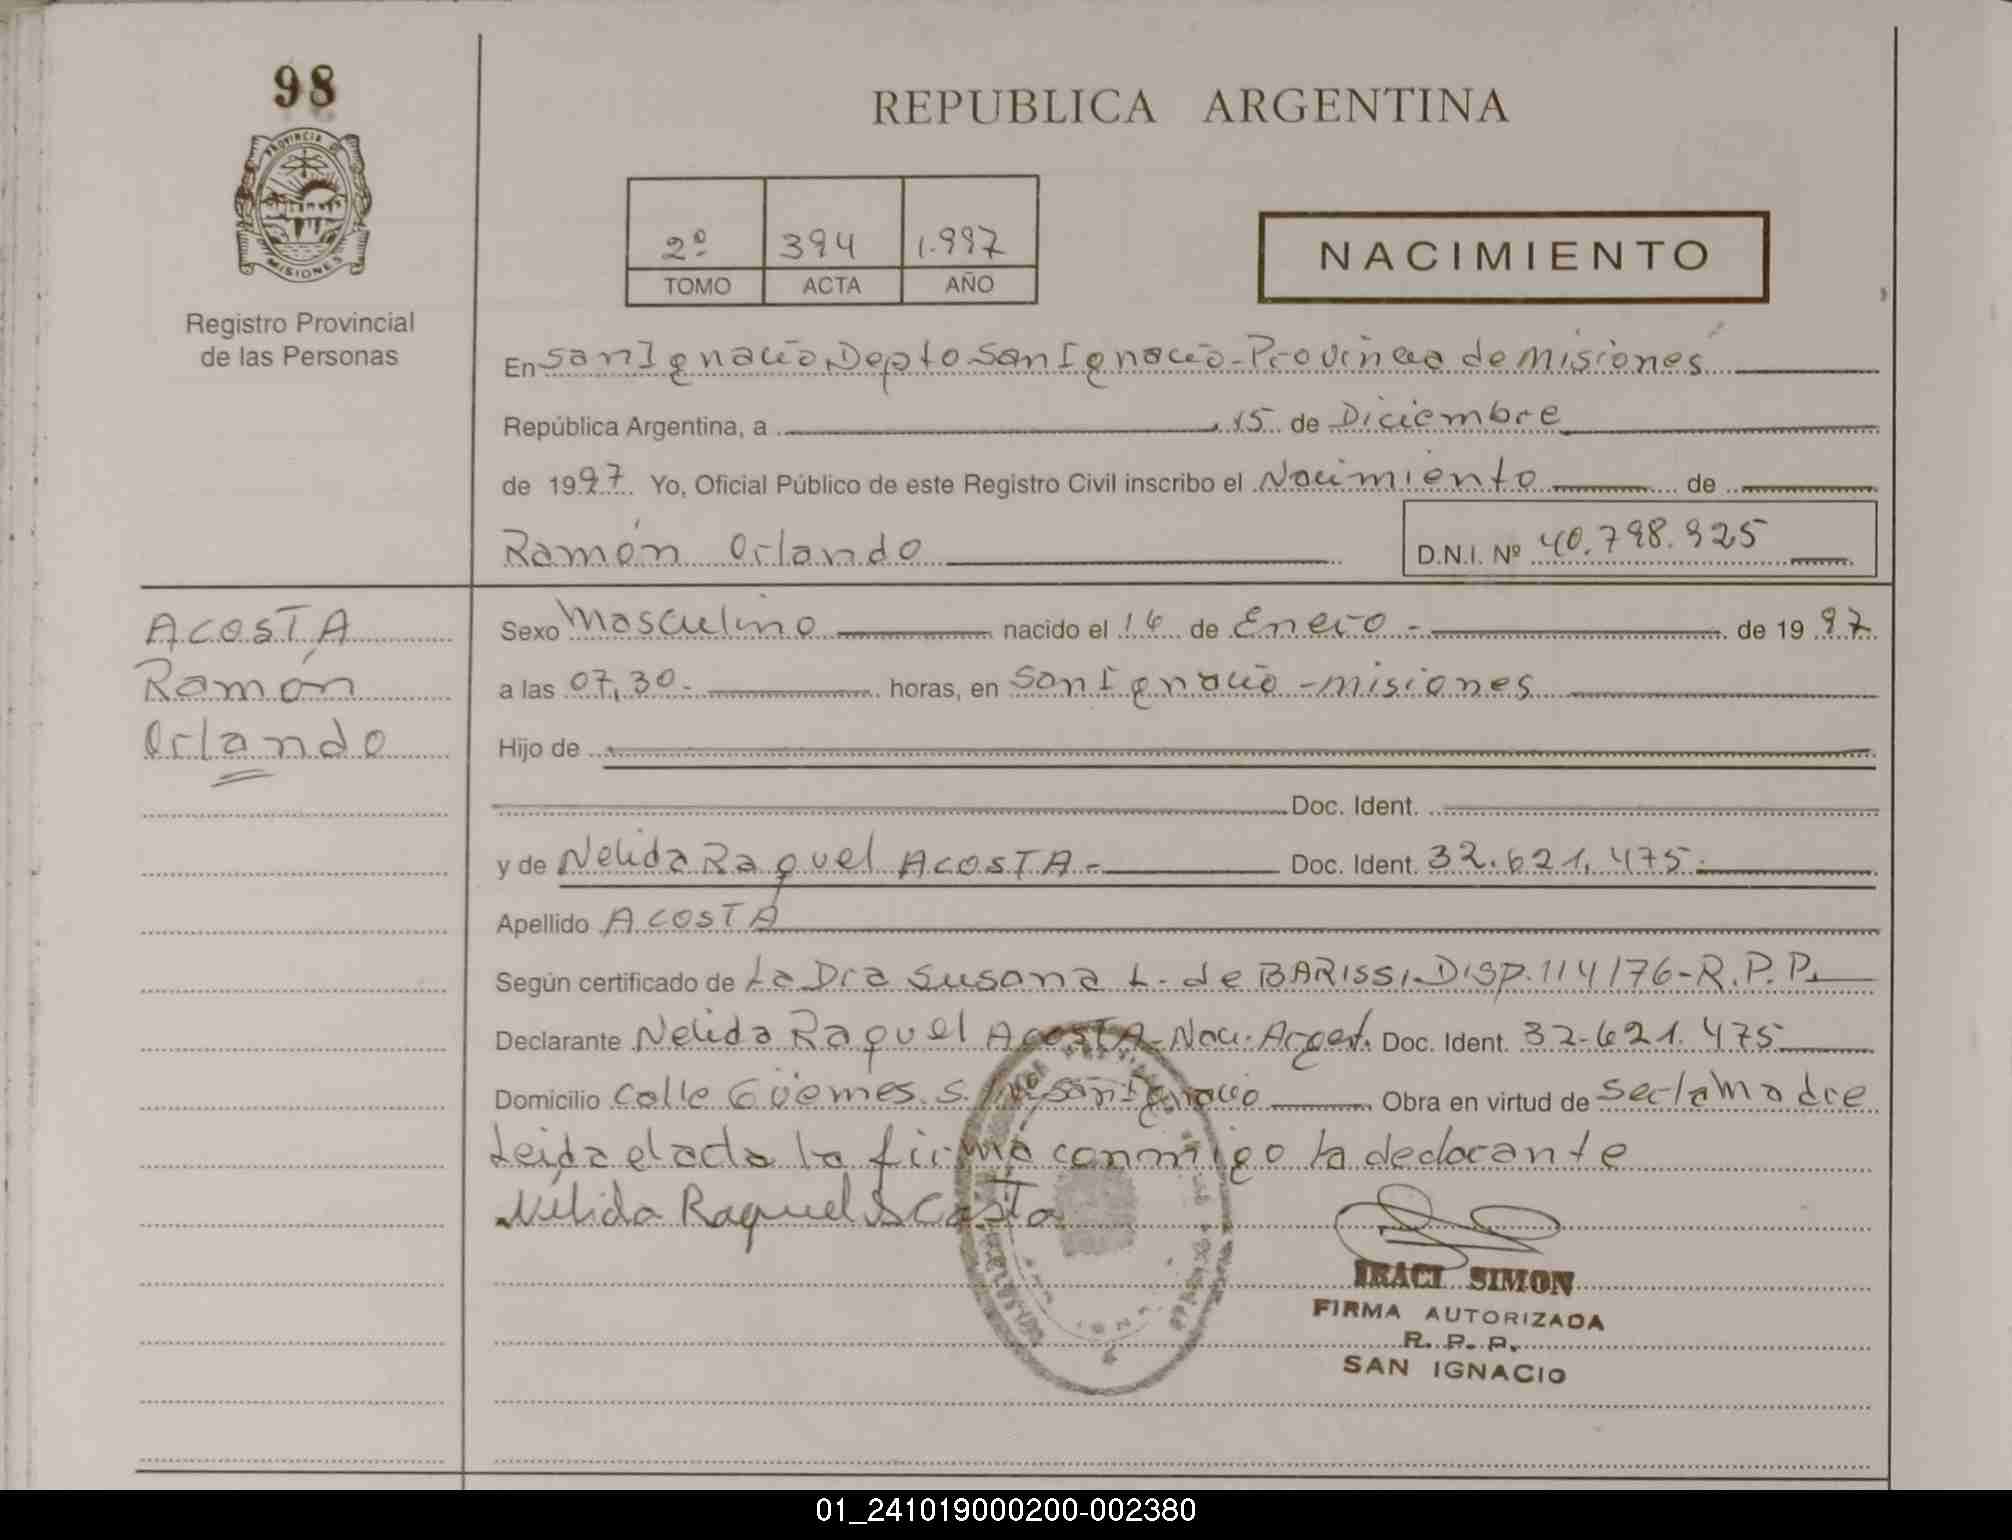 98
PROVINCIA DE
MISIONES
Registro Provincial
de las Personas
REPUBLICA ARGENTINA
2º 394 1.997
TOMO ACTA AÑO
NACIMIENTO
En San Ignacio Depto San Ignacio - Provincia de Misiones
República Argentina, a 15 de Diciembre
de 1997. Yo, Oficial Público de este Registro Civil inscribo el Nacimiento de
Ramón Orlando D.N.I. Nº 40.798.925
ACOSTA
Ramón
Orlando
Sexo Masculino nacido el de Enero - de 19 97
a las 07,30- horas, en San Ignacio - misiones
Hijo de
Doc. Ident.
y de Nelida Raquel ACOSTA- Doc. Ident. 32.621.475-
Apellido ACOSTA
Según certificado de La Dra Susana L. de BARISSI, DISP. 114/76-R.P.P.
Declarante Nelida Raquel ACOSTA- Nac. Arget. Doc. Ident. 32-621.475
Domicilio Calle Güemes. S. San Ignacio Obra en virtud de ser la Madre
Leida el acta la firma conmigo la declarante
Nélida Raquel Acosta
IRACI SIMON
FIRMA AUTORIZADA
R. P. P.
SAN IGNACIO
01_241019000200-002380